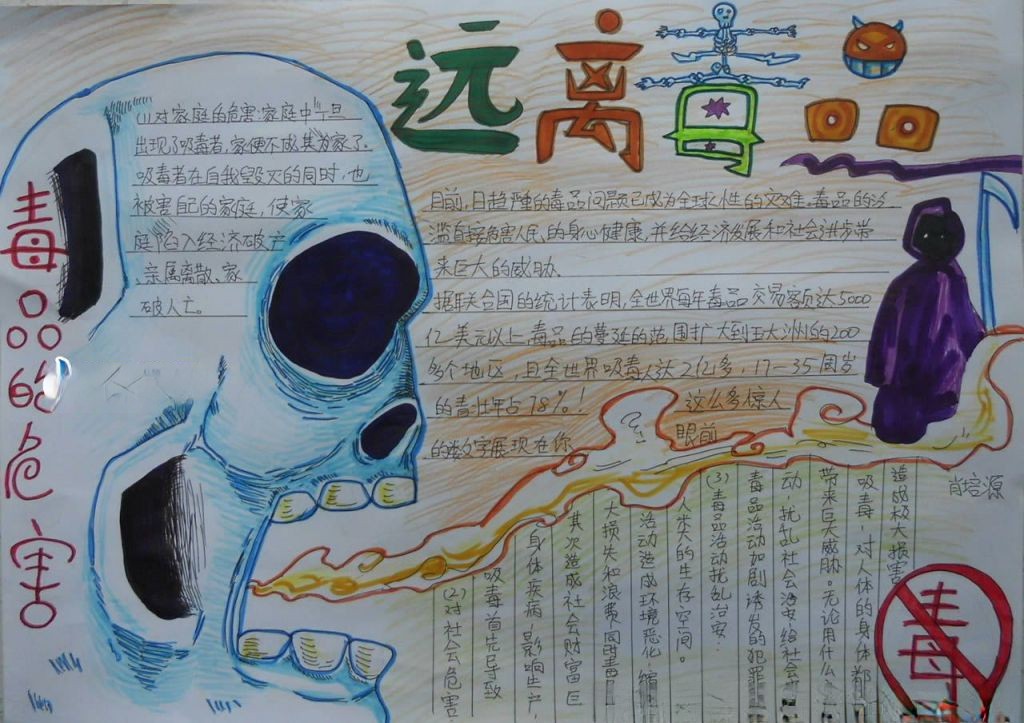 远离毒品
毒品的危害
(1)对家庭的危害:家庭中一旦
出现了吸毒者,家便不成其为家了。
吸毒者在自我毁灭的同时,也
被害自己的家庭,使家
庭陷入经济破产
亲属离散、家
破人亡。
目前,日趋严重的毒品问题已成为全球性的灾难。毒品的泛
滥直接危害人民的身心健康,并给经济发展和社会进步带
来巨大的威胁、
据联合国的统计表明,全世界每年毒品交易额达5000
亿美元以上,毒品的蔓延的范围扩大到五大洲的200
多个地区,且全世界吸毒人达2亿多,17-35周岁
的青壮年占78%! 这么多惊人
的数字展现在你 眼前
(2)对社会危害
吸毒首先导致
身体疾病,影响生产,
其次造成社会财富巨
大损失和浪费,同时毒
活动造成环境恶化,缩
人类大的生存空间。
(3)毒品活动扰乱治安:
毒品活动加剧诱发的犯罪
动,扰乱社会治安,给社会
带来巨大威胁。无论用什么
吸毒,对人体的身体都
造成极大损害
肖培源
毒